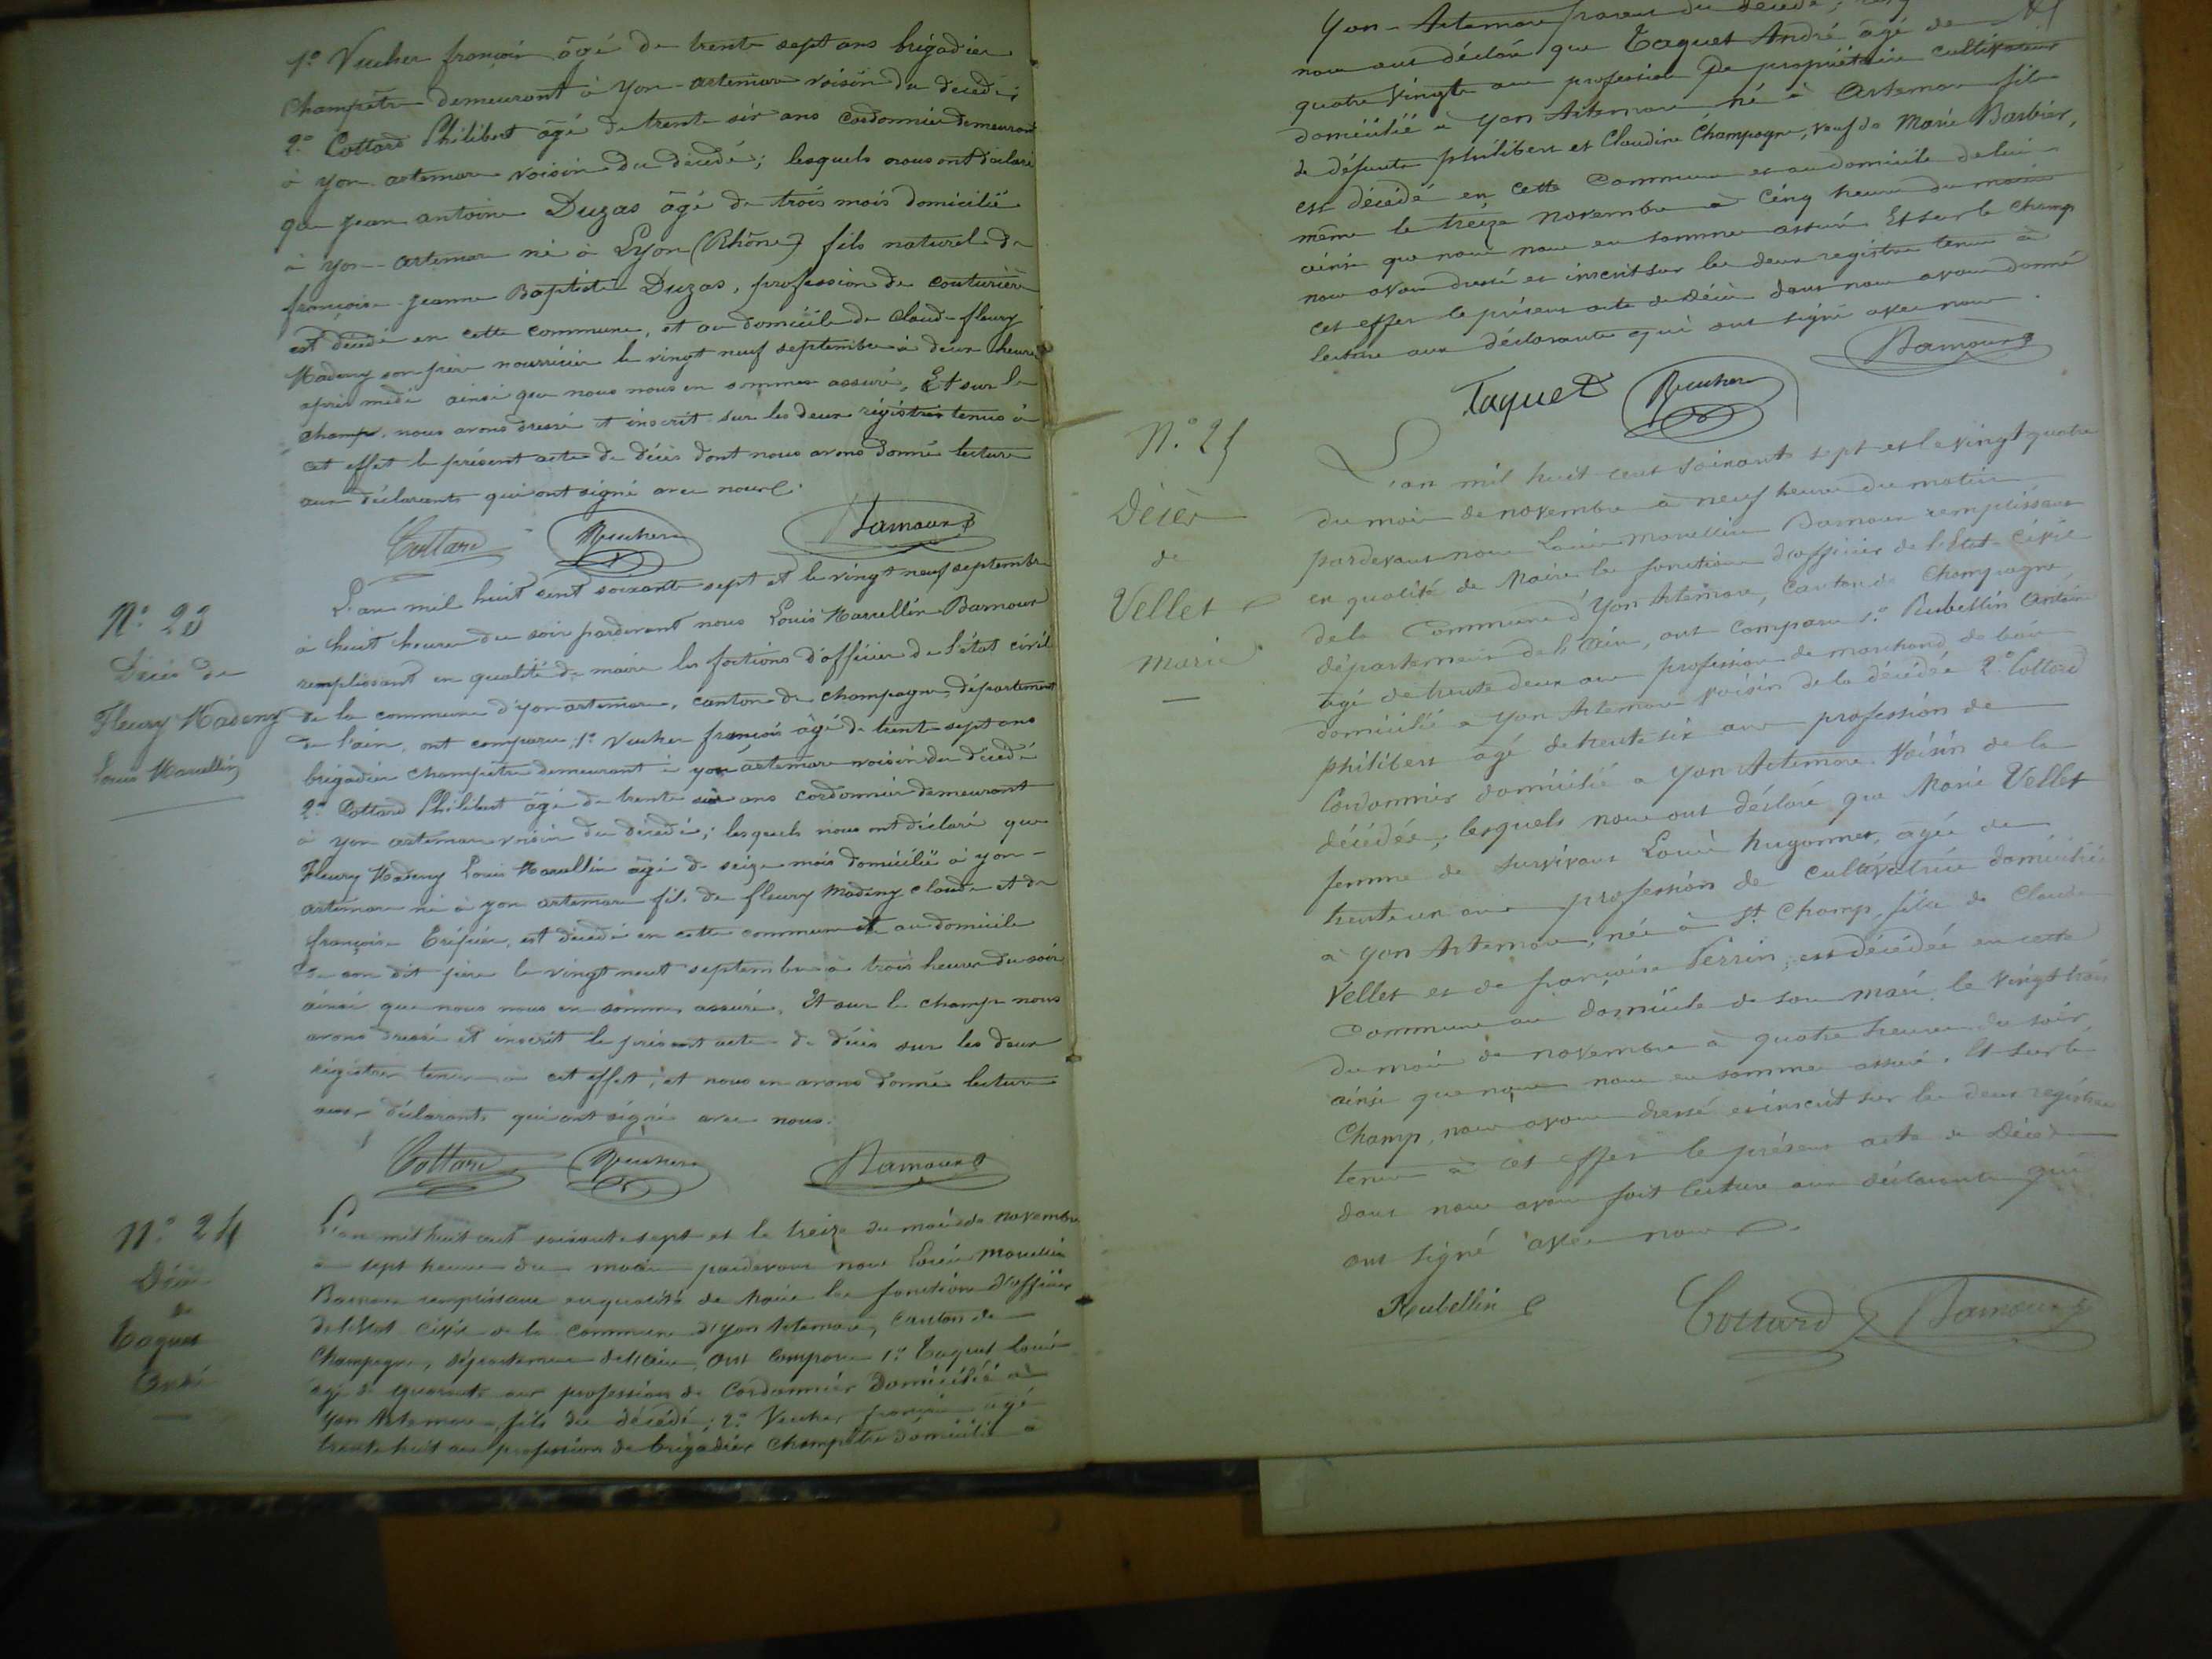 1° Vucher françois âgé de trente sept ans brigadier
champêtre demeurant à yon-artemare voisin du décédé;
2° Cottard Philibert âgé de trente six ans cordonnier demeurant
à yon artemare voisin du décédé; lesquels nous ont déclaré
que jean antoine Duzas âgé de trois mois domicilié
à yon-artemare né à Lyon (Rhône) fils naturel de
françoise jeanne Baptiste Duzas, profession de couturière
est décédé en cette commune, et au domicile de Claude fleury
Madeny son père nourricier le vingt neuf septembre à deux heures
après midi ainsi que nous nous en sommes assuré. Et sur le
champ, nous avons dressé et inscrit sur les deux régistres tenus à
cet effet le présent acte de décès dont nous avons donné lecture
aux déclarants qui ont signé avec nous.
Cottard Vucher Bamoux
N° 23
Décès de
Fleury Madeny
Louis Marcellin
L'an mil huit cent soixante sept et le vingt neuf septembre
à huit heures du soir pardevant nous Louis Marcellin Bamoux
remplissant en qualité de maire les foctions d'officier de l'état civil
de la commune d'yon artemare, canton de champagne, département
de l'ain, ont comparu 1° Vucher françois âgé de trente sept ans
brigadier champêtre demeurant à yon artemare voisin du décédé
2° Cottard Philibert âgé de trente six ans cordonnier demeurant
à yon artemare voisin du décédé; lesquels nous ont déclaré que
Fleury Madeny Louis Marcellin âgé de seize mois domicilié à yon-
artemare né à yon artemare fils de fleury Madeny claude et de
françoise est décédé en cette commune et au domicile
de son dit père le vingt neuf septembre à trois heures du soir
ainsi que nous nous en sommes assuré. Et sur le champ nous
avons dressé et inscrit le présent acte de décès sur les deux
régistres tenus à cet effet, et nous en avons donné lecture
aux déclarants qui ont signé avec nous.
Cottard Vucher Bamoux
N° 24
Décès
de
Taquet
André
L'an mil huit cent soixante sept et le treize du mois de novembre
à sept heures du matin pardevant nous Louis Marcellin
Bamoux remplissant en qualité de Maire les fonctions d'officier
de l'Etat civil de la commune d'yon Artemare, canton de
Champagne, département de l'ain, ont comparu 1° Taquet Louis
âgé de quarante ans profession de Cordonnier domicilié à
yon Artemare, fils du décédé; 2° Vucher françois âgé
trente huit ans profession de brigadier champêtre domicilié à
Yon-Artemare du décédé;
nous ont déclaré que Taquet André âgé de
quatre vingts ans profession de propriétaire cultivateur
domicilié à Yon Artemare né à Artemare fils
de défunts philibert et Claudine Champagne, veuf de Marie Barbier,
est décédé en cette Commune et au domicile de lui
même le treize novembre à cinq heures du matin
ainsi que nous nous en sommes assuré. Et sur le champ
nous avons dressé et inscrit sur les deux registres tenus à
cet effet le présent acte de décès dont nous avons donné
lecture aux déclarants qui ont signé avec nous.
Taquet Vucher Bamoux
N° 25
Décès
de
Vellet
Marie
L'an mil huit cent soixante sept et le vingt quatre
du mois de novembre à neuf heures du matin
pardevant nous Louis Marcellin Bamoux remplissant
en qualité de Maire les fonctions d'officier de l'Etat Civil
de la Commune d'Yon Artemare, canton de Champagne
département de l'Ain, ont comparu 1° Rubellin Antoine
âgé de trente deux ans profession de marchand de bois
domicilié à Yon Artemare voisin de la décédée 2° Cottard
philibert âgé de trente six ans profession de
Cordonnier domicilié à Yon Artemare voisin de la
décédée, lesquels nous ont déclaré que Marie Vellet
femme de survivant Louis hugonnet, âgée de
trente un ans profession de cultivatrice domiciliée
à Yon Artemare, née à St Champ, fille de Claude
Vellet et de françoise Perrin; est décédée en cette
Commune au domicile de son mari le vingt trois
du mois de novembre à quatre heures du soir
ainsi que nous nous en sommes assuré. Et sur le
Champ, nous avons dressé et inscrit sur les deux régistres
tenus à cet effet le présent acte de Décès
dont nous avons fait lecture aux déclarants qui
ont signé avec nous.
Rubellin Cottard Bamoux